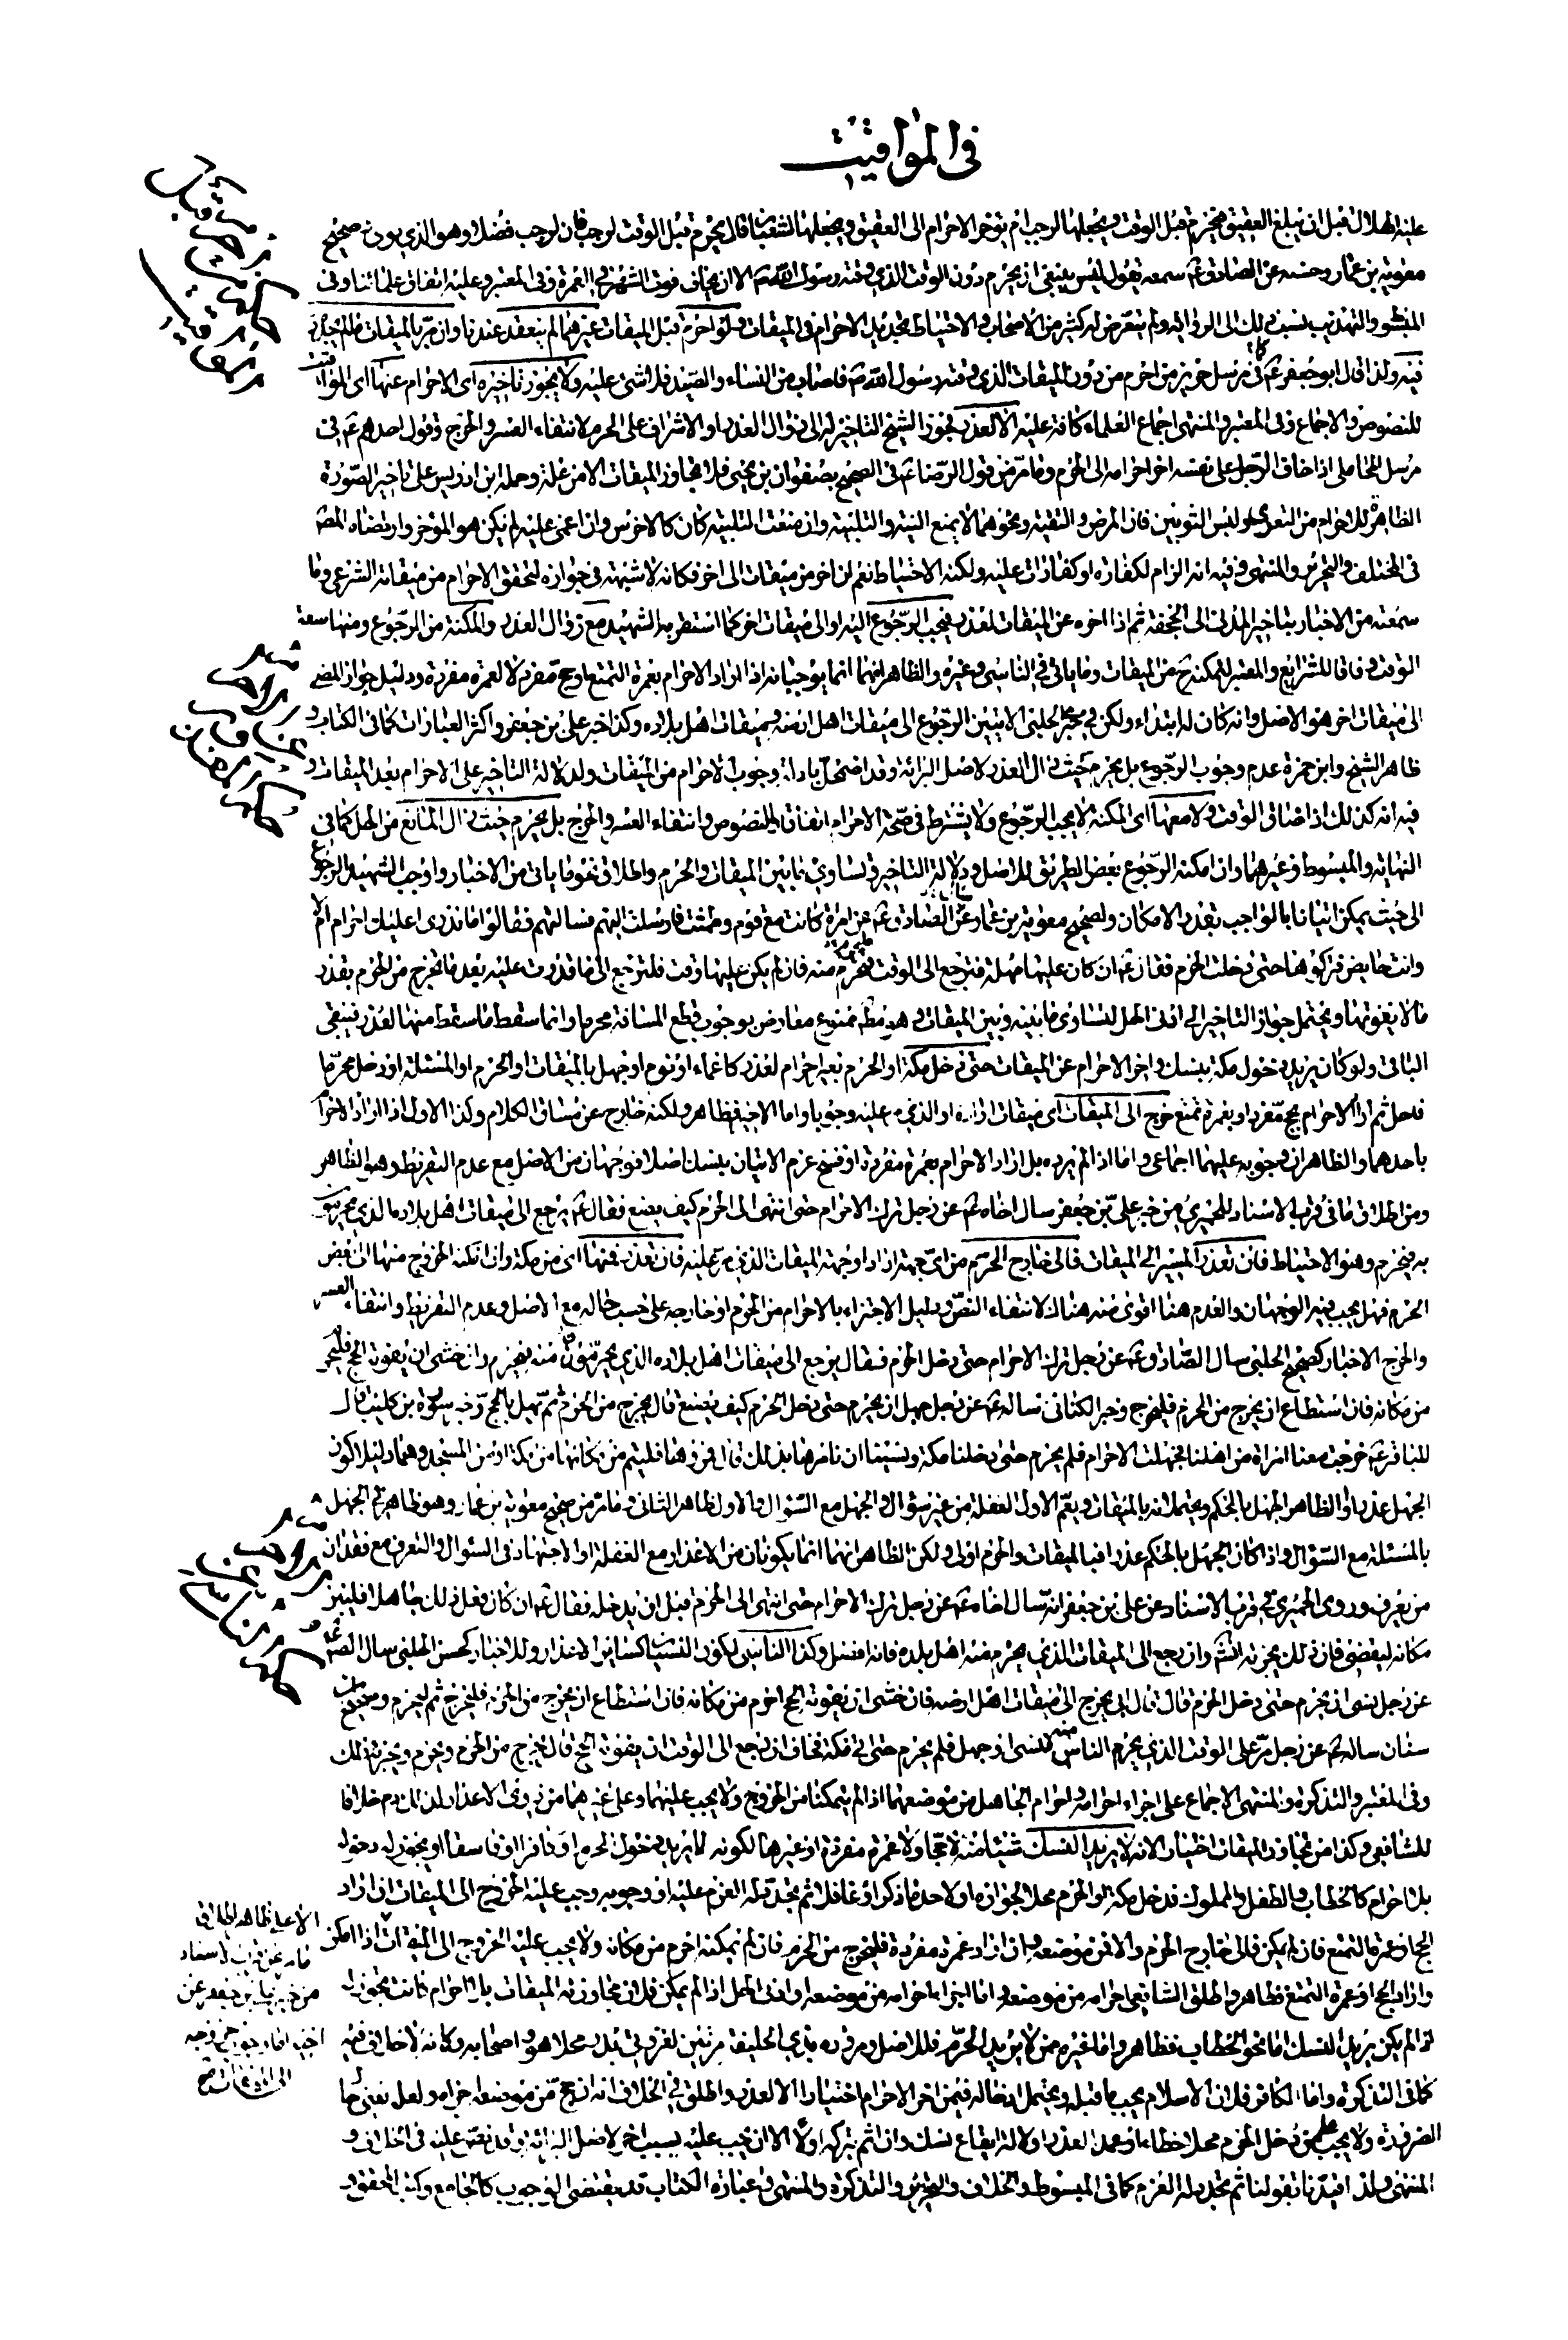 في المواقيت
عليه الهلال قبل ان يبلغ العقيق فيحرم قبل الوقت ويجعلها لرجب ام يؤخر الاحرام الى العقيق ويجعلها لشعبان قال يحرم قبل الوقت لرجب فان لرجب فضلا وهو الذي نوى صحيح
معوية بن عمار وحسنه عن الصادق ع سمعه يقول ليس ينبغي ان يحرم دون الوقت الذي وقته رسول الله ص الا ان يخاف فوت الشهر في العمرة وفي المعتبر وعليه اتفاق علمائنا وفي
المنتهى والتهذيب نسبة ذلك الى الرواية ولم يتعرض له كثير من الاصحاب والاحتياط تجديد الاحرام في الميقات ولو احرم قبل الميقات غيرهما لم ينعقد عندنا وان مر بالميقات ما لم يجدد
فيه ولذا قال ابو جعفر ع في مرسل حريز من احرم من دون الميقات الذي وقته رسول الله ص فاصاب من النساء والصيد فلا شئ عليه ولا يجوز تاخيره اى الاحرام عنها اى المواقيت
للنصوص والاجماع وفي المعتبر والمنتهى اجماع العلماء كافة عليه الا لعذر فجوز الشيخ التاخير له الى زوال العذر او الاشراف على الحرم لانتفاء العسر والحرج وقول احدهم ع في
مرسل المحاملي اذا خاف الرجل على نفسه اخر احرامه الى الحرم وما مر من قول الرضا ع في الصحيح لصفوان بن يحيى فلا تجاوز الميقات الا من علة وحمله ابن ادريس على تاخير الصورة
الظاهرة للاحرام من التعري ولبس الثوبين فان المرض والتقية ونحوهما لا يمنع النية والتلبية وان منعت التلبية كان كالاخرس وان اغمى عليه لم يكن هو المؤخر وارتضاه المصنف
في المختلف والتحرير والمنتهى وفيه انه الزام لكفارة او كفارات عليه ولكنه الاحتياط نعم لن اخر من ميقات الى اخر فكانه لا شبهة في جوازه لتحقق الاحرام من ميقاته الشرعي وما
سمعته من الاخبار بتاخير المدني الى الجحفة ثم اذا اخره عن الميقات لعذر فيجب الرجوع اليه او الى ميقات اخر كما استظهره الشهيد مع زوال العذر والمكنة من الرجوع ومنها سعة
الوقت وفاقا للشرايع والمعتبر لتمكنه ح من الميقات وما ياتي في الناسي وغيره والظاهر انهما انما يوجبانه اذا اراد الاحرام بعمرة التمتع او حج مفرد لا لعمرة مفردة ودليل جواز المضي
الى ميقات اخر هو الاصل وانه كان له ابتداء ولكن في صحيح الحلبي الاتيين الرجوع الى ميقات اهل ارضه وميقات اهل بلاده وكذا خبر علي بن جعفر واكثر العبارات كما في الكتاب و
ظاهر الشيخ وابن حمزة عدم وجوب الرجوع بل يحرم حيث زال العذر لاصل البراءة وقد اضمحل بادلة وجوب الاحرام من الميقات ولدلالة التاخير على الاحرام بعد الميقات و
فيه انه كذلك اذا ضاق الوقت ولا معها اى المكنة لا يجب الرجوع ولا يشترط في صحة الاحرام اتفاقا للنصوص وانتفاء العسر والحرج بل يحرم حيث زال المانع من الحل كما في
النهاية والمبسوط وغيرهما وان امكنه الرجوع بعض الطريق للاصل ودلالة التاخير وتساوي ما بين الميقات والحرم واطلاق نحو ما ياتي من الاخبار واوجب الشهيد الرجوع
الى حيث يمكن اتيانا بالواجب بقدر الامكان ولصحيح معوية بن عمار عن الصادق ع عن امراة كانت مع قوم وطمثت فارسلت اليهم فسالتهم فقالوا ما ندري اعليك احرام ام لا
وانت حايض فتركوها حتى دخلت الحرم فقال ع ان كان عليها مهلة فترجع الى الوقت فلتحرم منه فان لم يكن عليها وقت فلترجع الى ما قدرت عليه بعد ما تخرج من الحرم بقدر
ما لا يفوتها ويحتمل جواز التاخير الى ادنى الحل لتساوي ما بينه وبين الميقات وهو مع ممنوع معارض بوجوب قطع المسافة محرما وانما سقط ما سقط منها لعذر فينبغي
الباقي ولو كان يريد دخول مكة بنسك واخر الاحرام عن الميقات حتى دخل مكة او الحرم بغير احرام لعذر كاغماء او نوم او جهل بالميقات او الحرم او المسئلة او دخل محرما
فاحل ثم اراد الاحرام بحج مفرد او بعمرة تمتع خرج الى الميقات اى ميقات اراده او الذي مر عليه وجوبا واما الاخير فظاهر ولكنه خارج عن مساق الكلام وكذا الاول اذا اراد الاحرام
باحدهما والظاهر ان وجوبه عليهما اجماعي واما اذا لم يرده بل اراد الاحرام بعمرة مفردة او فسخ عزم الاتيان بنسك اصلا فوجهان من الاصل مع عدم التفريط وهو الظاهر
ومن اطلاق ما في قرب الاسناد للحميري من خبر علي بن جعفر سال اخاه ع عن رجل ترك الاحرام حتى انتهى الى الحرم كيف يصنع فقال ع يرجع الى ميقات اهل بلاده الذي يحرمون
به فيحرم وهو الاحتياط فان تعذر المسير الى الميقات فالى خارج الحرم من اى جهة اراد او جهة الميقات الذي مر عليه فان تعذر فمنها اى من مكة وان امكنه الخروج منها الى بعض
الحرم فهل يجب فيه الوجهان والعدم هنا اقوى منه هناك لانتفاء النص ودليل الاجتزاء بالاحرام من الحرم او خارجه على حسب حاله مع الاصل وعدم التفريط وانتفاء العسر
والحرج الاخبار كصحيح الحلبي سال الصادق ع عن رجل ترك الاحرام حتى دخل الحرم فقال يرجع الى ميقات اهل بلاده الذي يحرمون منه فيحرم وان خشى ان يفوته الحج فليحرم
من مكانه فان استطاع ان يخرج من الحرم فليخرج وخبر الكناني ساله ع عن رجل جهل ان يحرم حتى دخل الحرم كيف يصنع قال يخرج من الحرم ثم يهل بالحج وخبر سورة بن كليب قال
للباقر ع خرجت معنا امراة من اهلنا فجهلت الاحرام فلم يحرم حتى دخلنا مكة ونسينا ان نامرها بذلك قال فمروها فليحرم من مكانها من مكة او من المسجد وهما دليلا كون
الجهل عذرا والظاهر الجهل بالحكم ويحتملانه بالميقات ويعم الاول الغفلة من غير سؤال والجهل مع السؤال والاول ظاهر الثاني وما مر من صحيح معوية بن عمار وهو ظاهر في الجهل
بالمسئلة مع السؤال واذا كان الجهل بالحكم عذرا فبالميقات والحرم اولى ولكن الظاهر انهما انما يكونان من الاعذار مع الغفلة او الاجتهاد في السؤال والتعرف مع فقدان
من يعرف وروى الحميري في قرب الاسناد عن علي بن جعفر انه سال اخاه ع عن رجل ترك الاحرام حتى انتهى الى الحرم قبل ان يدخله فقال ع ان كان فعل ذلك جاهلا فليبن
مكانه ليقضي فان ذلك يجزئه انشاء وان رجع الى الميقات الذي يحرم منه اهل بلده فانه افضل وكذا الناسي لكون النسيان كساير الاعذار وللاخبار كحسن الحلبي سال الصادق ع
عن رجل نسى ان يحرم حتى دخل الحرم قال قال ابي يخرج الى ميقات اهل ارضه فان خشى ان يفوته الحج احرم من مكانه فان استطاع ان يخرج من الحرم فليخرج ثم ليحرم وصحيح بن
سنان ساله ع عن رجل مر على الوقت الذي يحرم الناس منه فنسى او جهل فلم يحرم حتى اتى مكة فخاف ان رجع الى الوقت ان يفوته الحج قال يخرج من الحرم ويحرم ويجزئه ذلك
وفي المعتبر والتذكرة والمنتهى الاجماع على اجزاء احرامه واحرام الجاهل من موضعهما اذا لم يتمكنا من الخروج ولا يجب عليهما وعلى غيرهما من ذوي الاعذار لذلك دم خلافا
للشافعي وكذا من تجاوز الميقات اختيارا لانه لا يريد النسك شيئا منه لا حجا ولا عمرة مفردة او غيرها لكونه لا يريد دخول الحرم او كافرا او فاسقا او يجوز له دخوله
بلا احرام كالحطاب والطفل والمملوك فدخل مكة او الحرم محلا لجوازه او لاحد ما ذكر او غافلا ثم تجدد له العزم عليه او وجوبه وجب عليه الخروج الى الميقات ان اراد
الحج او عمرة التمتع فان لم يمكن فالى خارج الحرم والا فمن موضعه وان اراد عمرة مفردة فليخرج من الحرم فان لم يمكنه احرم من مكانه ولا يجب عليه الخروج الى الميقات اذا امكن
واراد الحج او عمرة التمتع فظاهر واطلق الشافعي احرامه من موضعه واما اجزاء احرامه من موضعه او ادنى الحل اذا لم يمكن فلان تجاوزه الميقات بلا احرام كانت يجوز له
اذا لم يكن يريد النسك اما نحو الحطاب فظاهر واما غيره ممن لا يريد الحرم فللاصل ومروره ص بذي الحليفة مرتين لغزوتي بدر محلا هو واصحابه وكانه لا خلاف فيه
كما في التذكرة واما الكافر فلان الاسلام يجب ما قبله ويحتمل ادخاله فيمن اخر الاحرام اختيارا لا لعذر واطلق في الخلاف انه ان حج من موضعه اجزاه ولعل يعني حال
الضرورة ولا يجب على من دخل الحرم محلا خطاء او عمدا لعذر او لا لارادة ايقاع نسك وان اثم بتركه اولا الا ان يجب عليه بسبب اخر لاصل البراءة وقد نص عليه في الخلاف و
المنتهى ولذا قيدنا بقولنا ثم تجدد له العزم كما في المبسوط والخلاف والتحرير والتذكرة والمنتهى وعبارة الكتاب قد يقتضي الوجوب كالجامع وكتب المحقق و